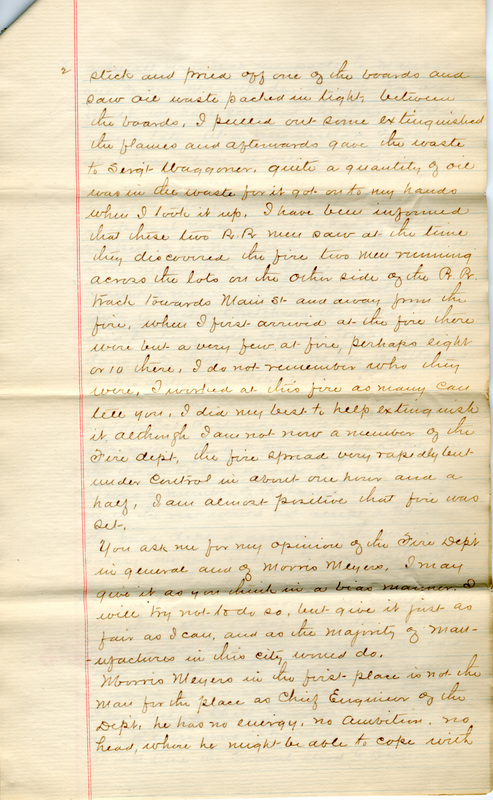 2
stick and pried off one of the boards and
saw oil waste packed in tight between
the boards, I pulled out some extinguished
the flames and afterwards gave the waste
to Sergt Waggoner, quite a quantity of oil
was in the waste for it got on to my hands
when I took it up, I have been informed
that these two R.R men saw at the time
they discovered the fire two men running
across the lots on the other side of the R.R.
track towards Main St and away from the
fire, when I first arrived at the fire there
were but a very few at fire, perhaps eight
or 10 there, I do not remember who they
were, I worked at this fire as many can
tell you, I did my best to help extinguish
it, although I am not now a member of the
Fire dept, the fire spread very rapidly but
under control in about one hour and a
half, I am almost positive that fire was
set.
You ask me for my opinion of the Fire Dept
in general and of Morris Meyers, I may
give it as you think in a bias manner. I
will try not to do so, but give it just as
fair as I can, and as the majority of man-
-ufactures in this city would do.
Morris Meyers in the first place is not the
man for the place as Chief Engineer of the
Dept, he has no energy, no ambition, no
head, where he might be able to cope with